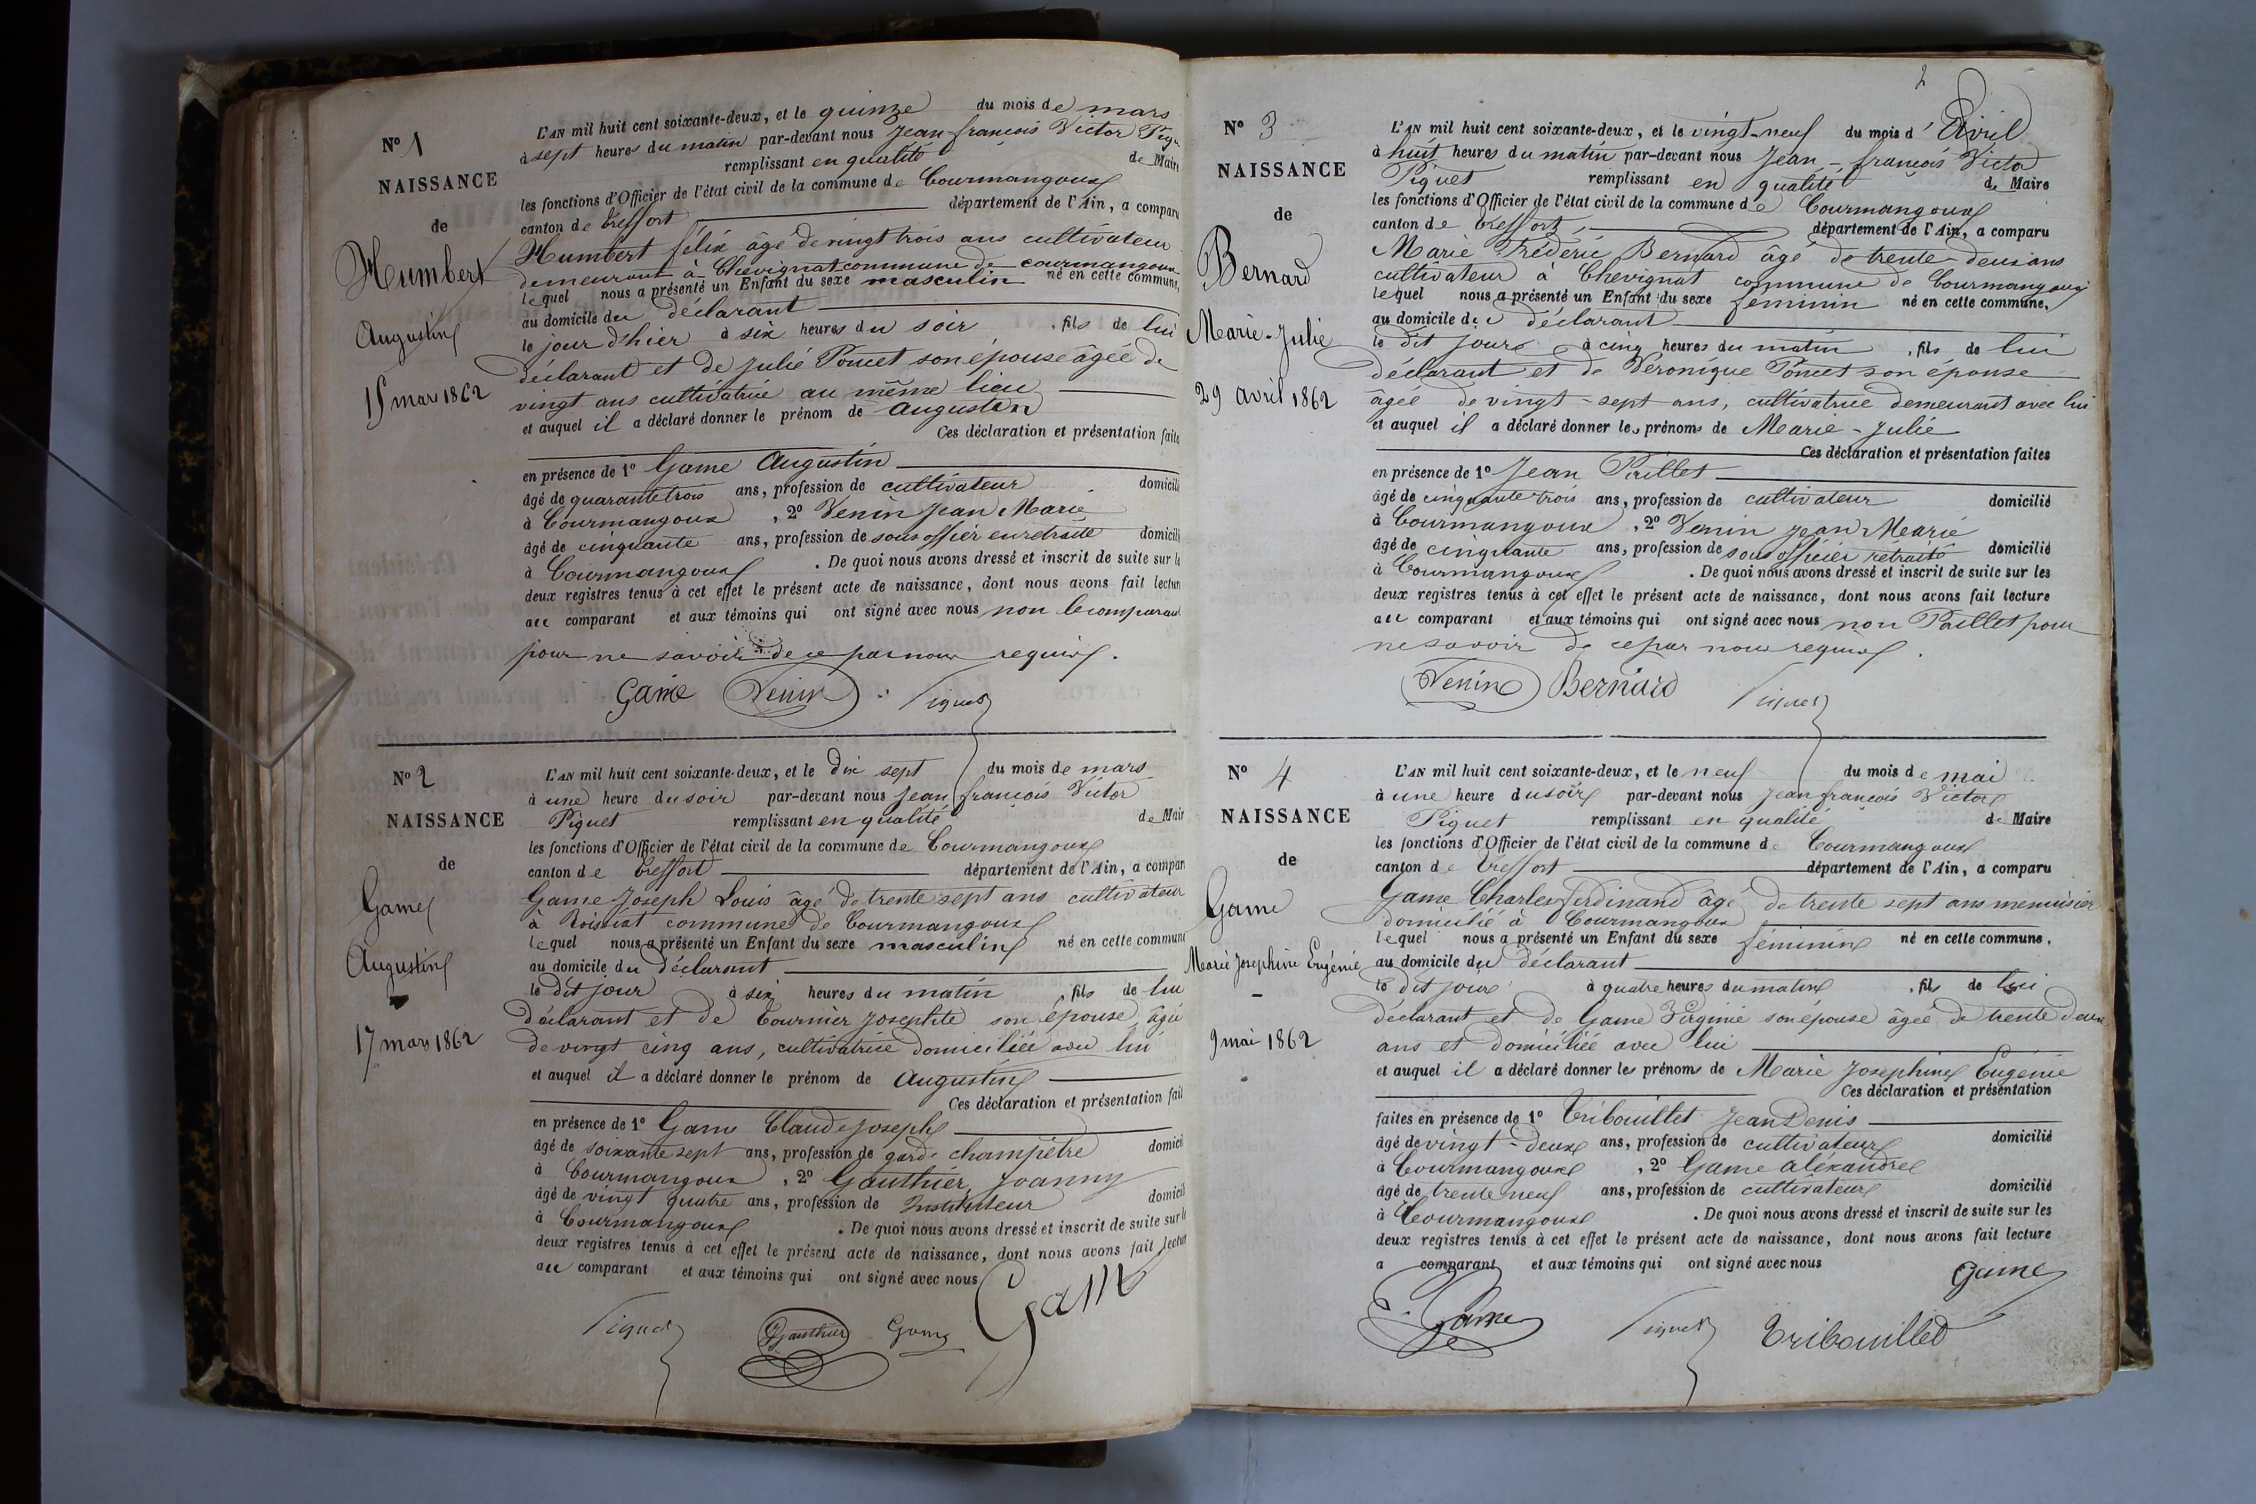 N° 1
NAISSANCE
de
Humbert
Augustin
15 mars 1862
L'AN mil huit cent soixante-deux, et le quinze du mois de mars
à sept heures du matin par-devant nous Jean-françois Victor Piqu
remplissant en qualité de Maire
les fonctions d'Officier de l'état civil de la commune de Courmangoux
canton de Treffort département de l'Ain, a comparu
Humbert félix âgé de vingt trois ans cultivateur
demeurant à Chevignat commune de courmangoux
lequel nous a présenté un Enfant du sexe masculin né en cette commune,
au domicile du déclarant
le jour d'hier à six heures du soir , fils de lui
déclarant et de Julie Poncet son épouse âgée de
vingt ans cultivatrice au même lieu
et auquel il a déclaré donner le prénom de Augustin
Ces déclaration et présentation faite
en présence de 1° Game Augustin
âgé de quarante trois ans, profession de cultivateur domicili
à Courmangoux , 2° Venin Jean Marie
âgé de cinquante ans, profession de sous officier en retraite domicili
à Courmangoux . De quoi nous avons dressé et inscrit de suite sur le
deux registres tenus à cet effet le présent acte de naissance, dont nous avons fait lectur
au comparant et aux témoins qui ont signé avec nous non le comparant
pour ne savoir de ce par nous requis.
Game Venin Piquet
N° 2
NAISSANCE
de
Game
Augustin
17 mars 1862
L'AN mil huit cent soixante-deux, et le dix sept du mois de mars
à une heure du soir par-devant nous Jean françois Victor
Piquet remplissant en qualité de Mair
les fonctions d'Officier de l'état civil de la commune de Courmangoux
canton de Treffort département de l'Ain, a compar
Game Joseph Louis âgé de trente sept ans cultivateur
à Roissiat commune de Courmangoux
lequel nous a présenté un Enfant du sexe masculin né en cette commune
au domicile du déclarant
le dit jour à six heures du matin , fils de lui
déclarant et de Tournier Josephte son épouse âgée
de vingt cinq ans, cultivatrice domiciliée avec lui
et auquel il a déclaré donner le prénom de Augustin
Ces déclaration et présentation fait
en présence de 1° Game Claude Joseph
âgé de soixante sept ans, profession de garde champêtre domici
à Courmangoux , 2° Gauthier Joanny
âgé de vingt quatre ans, profession de Instituteur domicil
à Courmangoux . De quoi nous avons dressé et inscrit de suite sur le
deux registres tenus à cet effet le présent acte de naissance, dont nous avons fait lectur
au comparant et aux témoins qui ont signé avec nous
Game
Piquet Gauthier Game
2
N° 3
NAISSANCE
de
Bernard
Marie-Julie
29 avril 1862
L'AN mil huit cent soixante-deux, et le vingt-neuf du mois d'Avril
à huit heures du matin par-devant nous Jean-françois Victor
Piquet remplissant en qualité de Maire
les fonctions d'Officier de l'état civil de la commune de Courmangoux
canton de Treffort, département de l'Ain, a comparu
Marie Frédéric Bernard âgé de trente-deux ans
cultivateur à Chevignat commune de Courmangoux
lequel nous a présenté un Enfant du sexe féminin né en cette commune,
au domicile du déclarant
le dit jour à cinq heures du matin , fils de lui
déclarant et de Véronique Poncet son épouse
âgée de vingt-sept ans, cultivatrice demeurant avec lui
et auquel il a déclaré donner les prénoms de Marie-Julie
Ces déclaration et présentation faites
en présence de 1° Jean Paillet
âgé de cinquante trois ans, profession de cultivateur domicilié
à Courmangoux , 2° Venin Jean Marie
âgé de cinquante ans, profession de sous officier retraité domicilié
à Courmangoux . De quoi nous avons dressé et inscrit de suite sur les
deux registres tenus à cet effet le présent acte de naissance, dont nous avons fait lecture
au comparant et aux témoins qui ont signé avec nous non Paillet pour
ne savoir de ce par nous requis.
Venin Bernard Piquet
N° 4
NAISSANCE
de
Game
Marie Josephine Eugénie
9 mai 1862
L'AN mil huit cent soixante-deux, et le neuf du mois de mai
à une heure du soir par-devant nous Jean françois Victor
Piquet remplissant en qualité de Maire
les fonctions d'Officier de l'état civil de la commune de Courmangoux
canton de Treffort département de l'Ain, a comparu
Game Charles ferdinand âgé de trente sept ans menuisier
domicilié à Courmangoux
lequel nous a présenté un Enfant du sexe féminin né en cette commune,
au domicile du déclarant
le dit jour à quatre heures du matin , fils de lui
déclarant et de Game Virginie son épouse âgée de trente deux
ans et domiciliée avec lui
et auquel il a déclaré donner les prénoms de Marie Josephine Eugénie
Ces déclaration et présentation
faites en présence de 1° Tribouillet Jean Denis
âgé de vingt-deux ans, profession de cultivateur domicilié
à Courmangoux , 2° Game aléxandre
âgé de trente neuf ans, profession de cultivateur domicilié
à Courmangoux . De quoi nous avons dressé et inscrit de suite sur les
deux registres tenus à cet effet le présent acte de naissance, dont nous avons fait lecture
a comparant et aux témoins qui ont signé avec nous
Game
Game Piquet Tribouillet